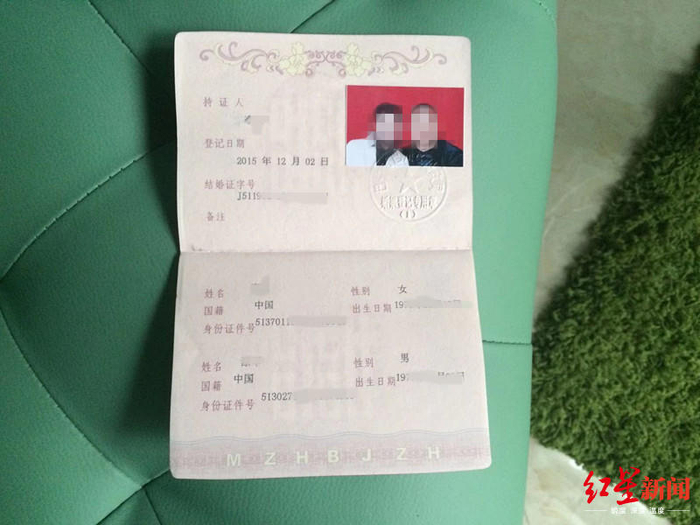 持证人
登记日期
2015 年 12 月 02 日
结婚证字号
J5119
备注
(1)
姓名 性别 女
国籍 中国 出生日期 19
身份证件号 5137011
姓名 性别 男
国籍 中国 出生日期 19
身份证件号 513027
M Z H B J Z H
红星新闻